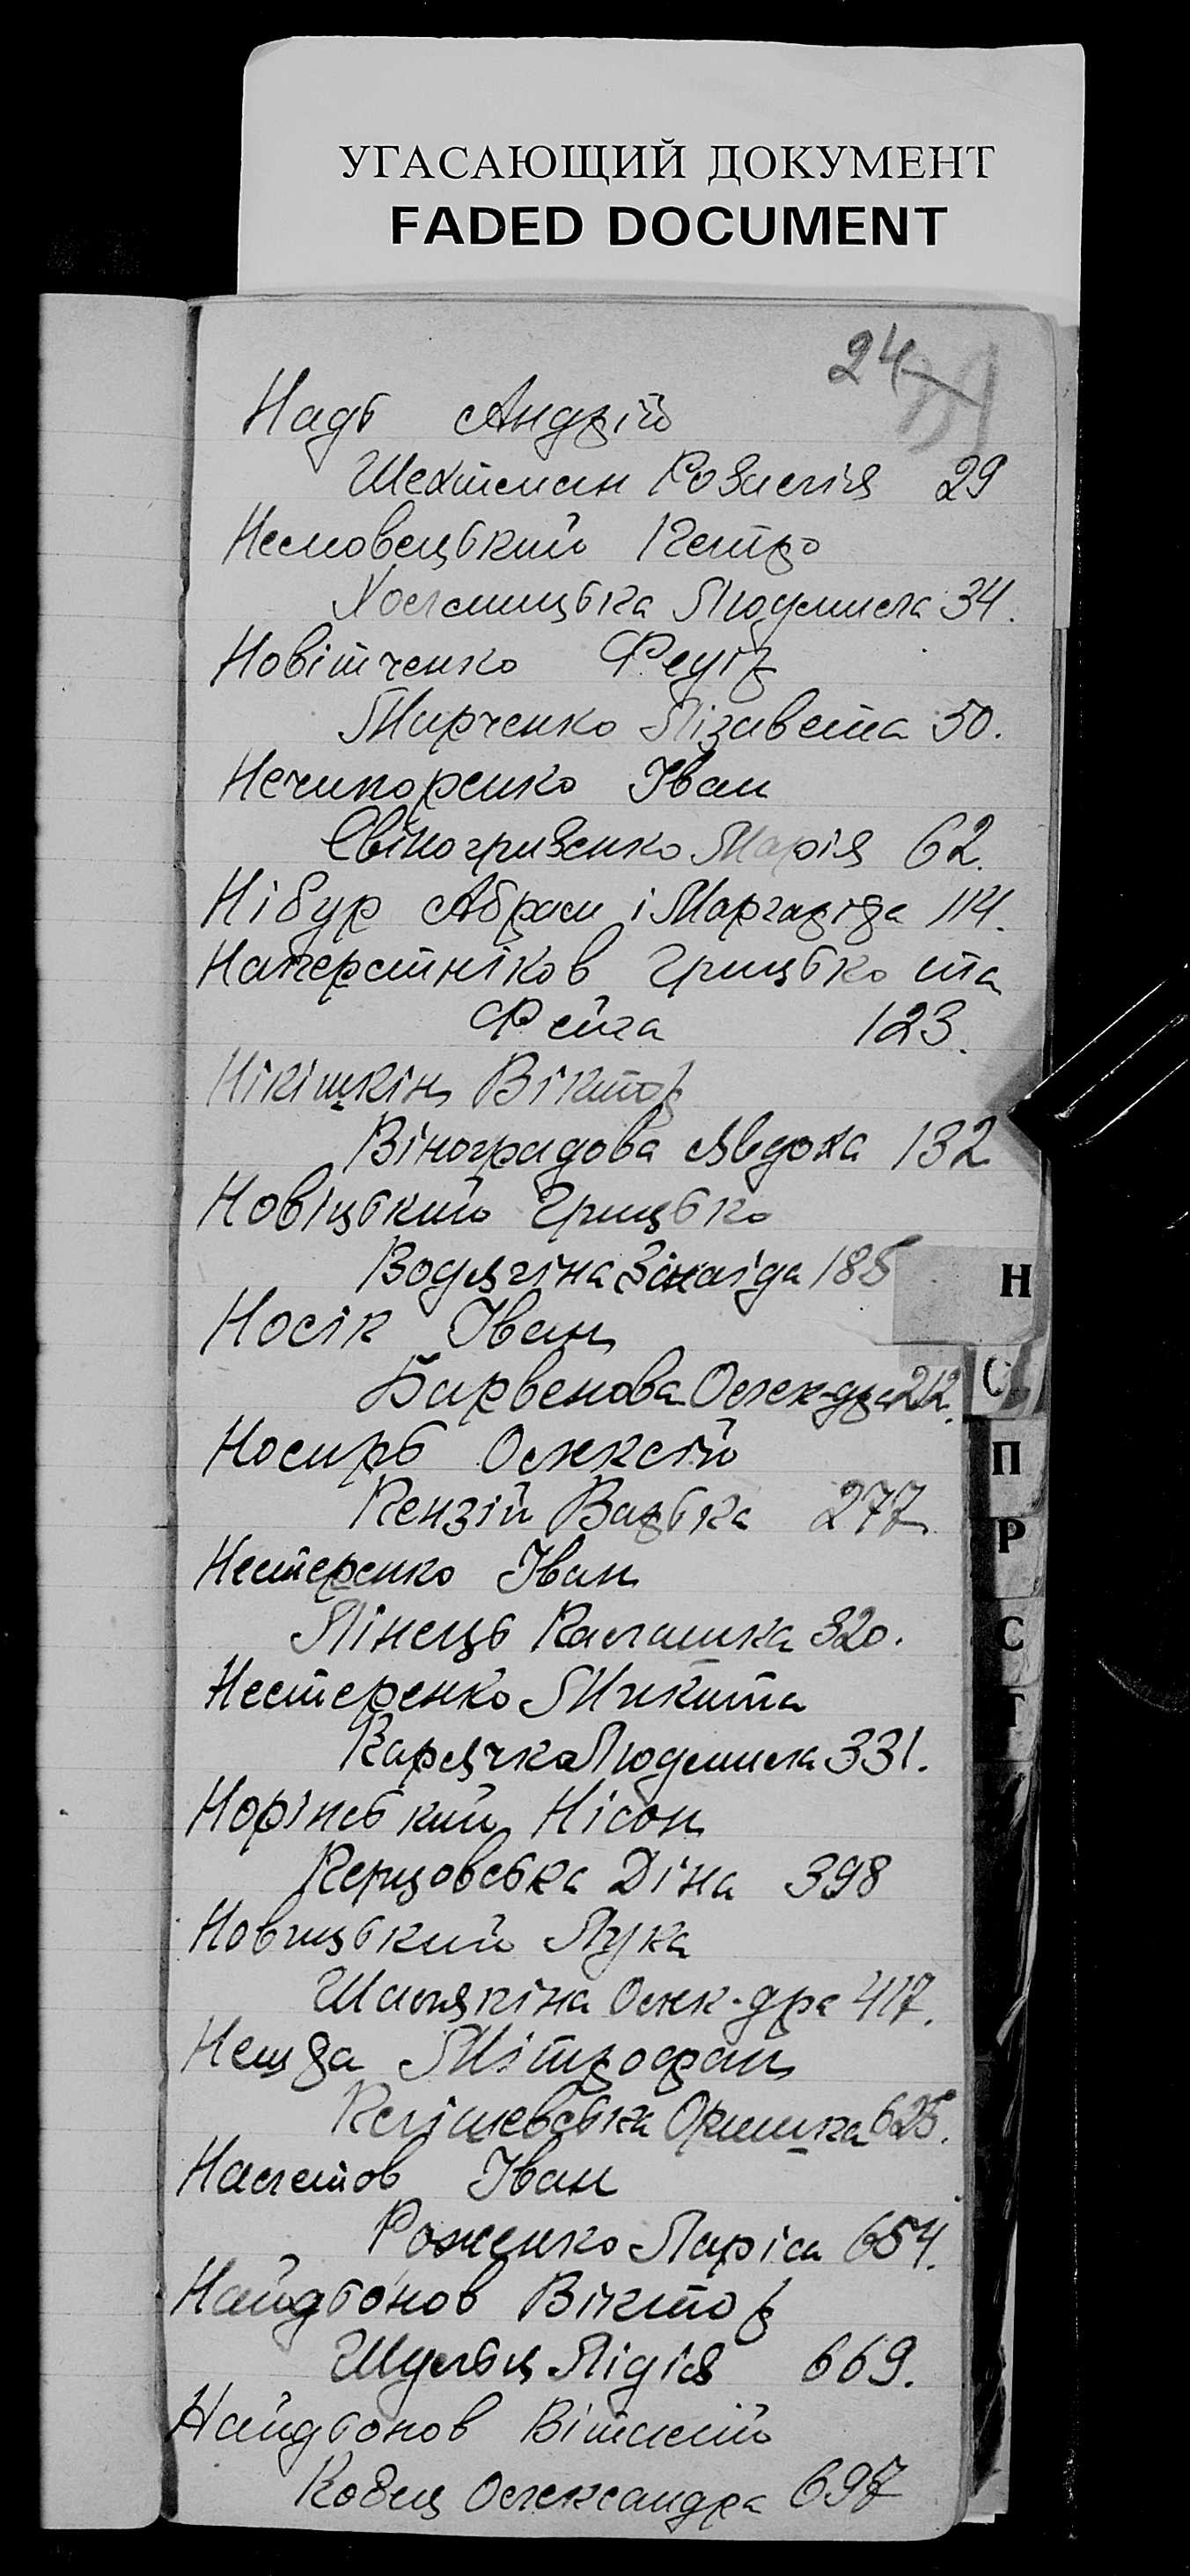 УГАСАЮЩИЙ ДОКУМЕНТ
FADED DOCUMENT
24
Надь Андрій
Шехтман Розалія 29
Немовецький Петро
Холмицька Людмила 34.
Новітченко Федір
Марченко Лізавета 50.
Нечипоренко Іван
Євіногризенко Марія 62.
Нібур Абрам і Маргаріда 114.
Наперстніков Грицько та
Фейга 123.
Нікішкін Віктор
Віноградова Явдоха 132
Новіцький Грицько
Водягіна Зінаіда 185
Носік Іван
Барвенова Олек-дра 212.
Носирь Олексій
Кензій Варька 277
Нестеренко Іван
Лінець Калашка 320.
Нестеренко Микита
Карячка Людмила 331.
Норінський Нісон
Перцовська Діна 398
Новицький Лука
Шаляпіна Олек-дра 417.
Немда Мітрофан
Келішевська Оришка 625.
Налетов Іван
Роженко Ларіса 654.
Найдьонов Віктор
Шульц Лідія 669.
Найдьонов Віталій
Кобец Олександра 697
Н
О
П
Р
С
Т